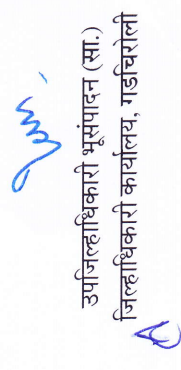 उपजिल्हाधिकारी भूसंपादन (सा.)
जिल्हाधिकारी कार्यालय, गडचिरोली